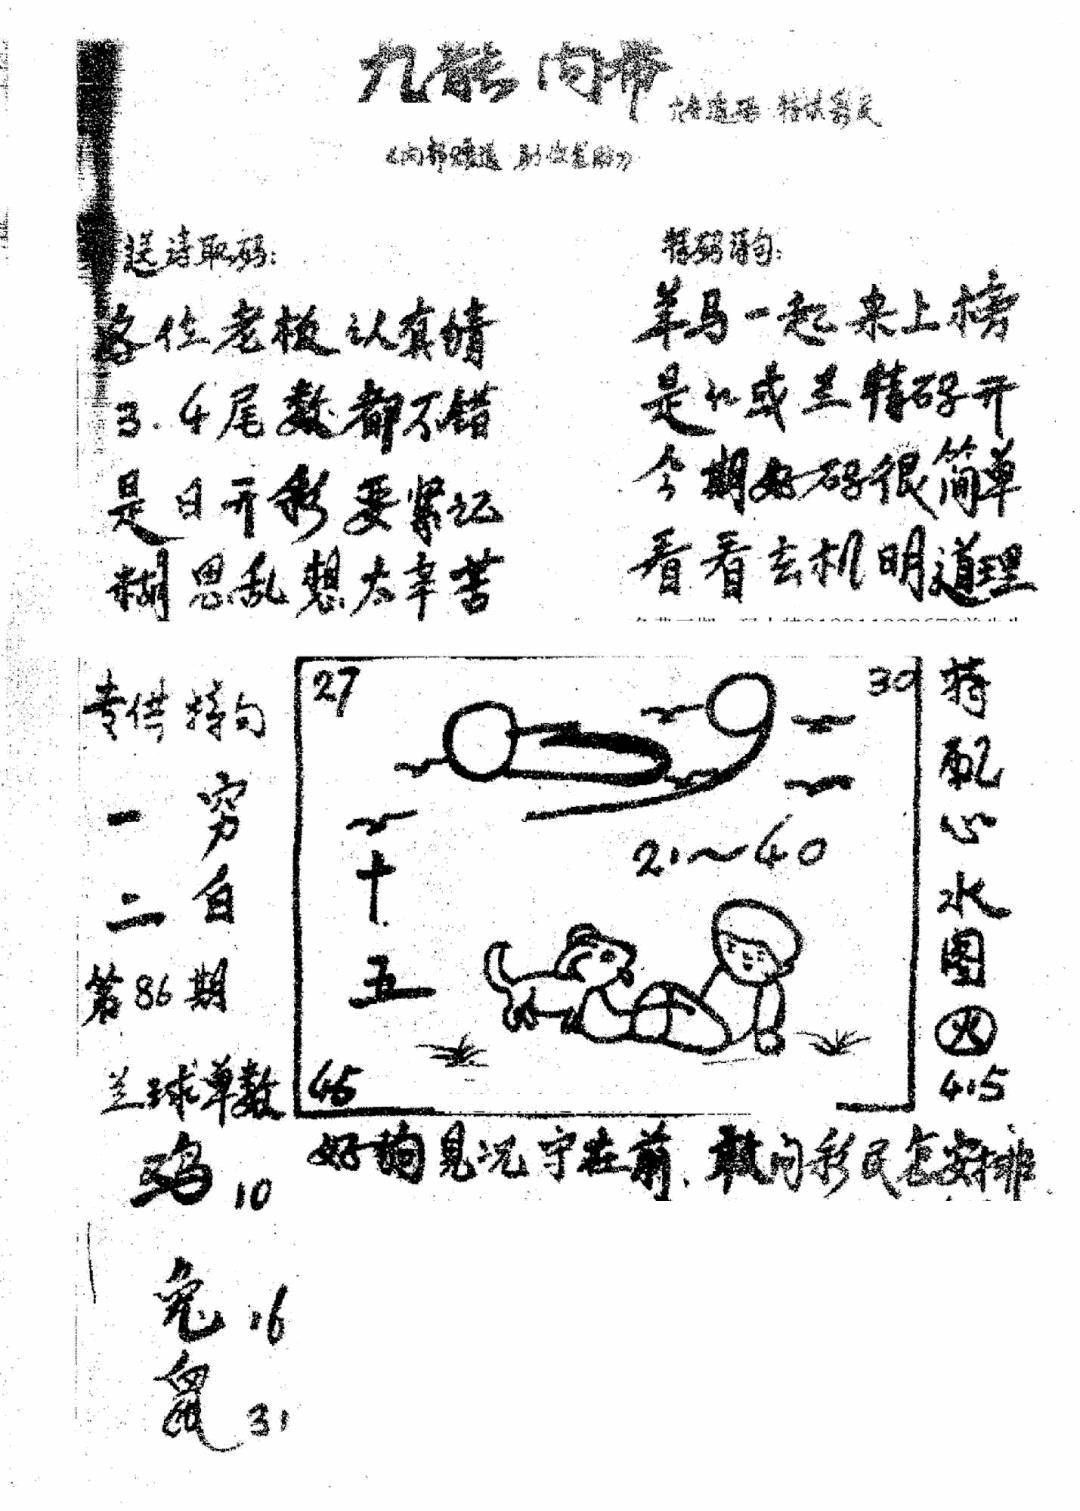 九龍内幕
送诗取码:
各位老板认真睛
3.4尾数都不错
是日开彩要紧记
糊思乱想太辛苦
特码诗句:
羊马一起来上榜
是红或兰特码开
今期好码很简单
看看玄机明道理
专供特句
一 穷
二 白
第86期
兰球单数
鸡10
兔16
鼠31
27
30
21~40
十
五
45
特配心水图
火
4.5
好狗见况守在前、敢问彩民怎安排